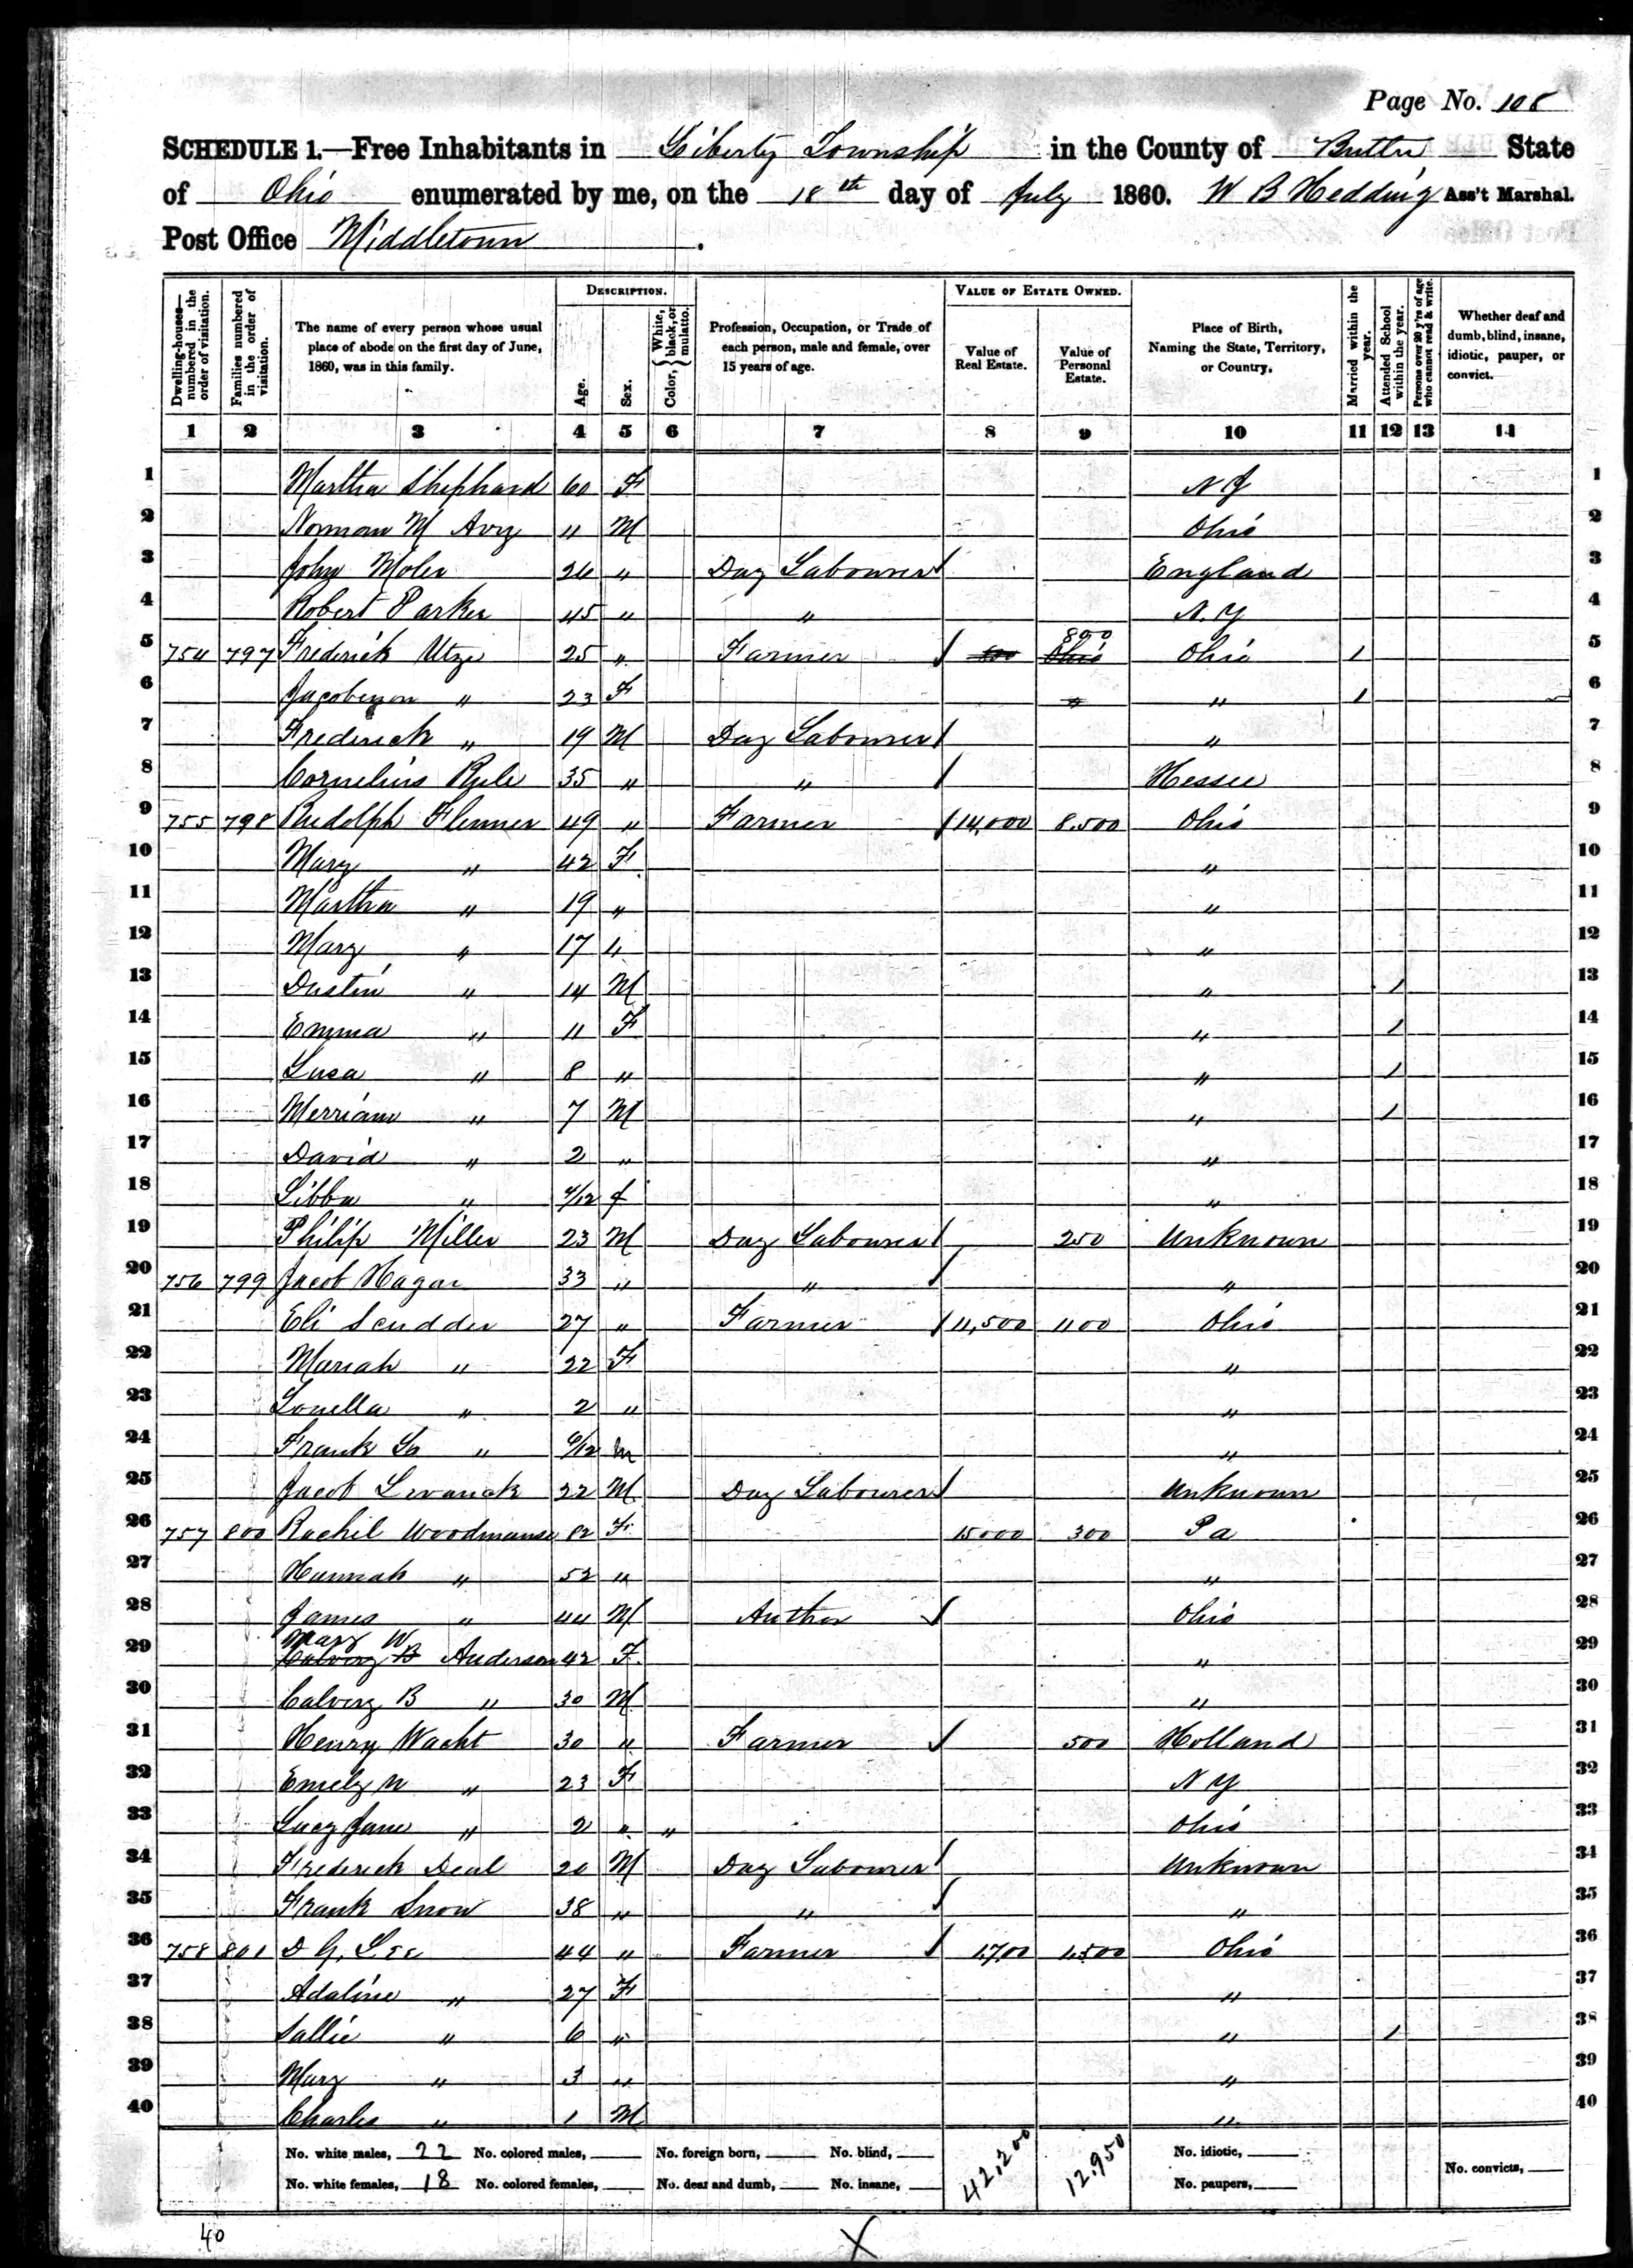 Page No. 108
SCHEDULE 1.—Free Inhabitants in Liberty Township in the County of Butler State
of Ohio enumerated by me, on the 18th day of July 1860. W B Hedding Ass't Marshal.
Post Office Middletown.
Dwelling-houses—numbered in the order of visitation. Families numbered in the order of visitation. The name of every person whose usual place of abode on the first day of June, 1860, was in this family. DESCRIPTION. Age. Sex. Color, {White, black, or mulatto. Profession, Occupation, or Trade of each person, male and female, over 15 years of age. VALUE OF ESTATE OWNED. Value of Real Estate. Value of Personal Estate. Place of Birth, Naming the State, Territory, or Country. Married within the year. Attended School within the year. Persons over 20 y'rs of age who cannot read & write. Whether deaf and dumb, blind, insane, idiotic, pauper, or convict.
1 2 3 4 5 6 7 8 9 10 11 12 13 14
1 Martha Shephard 60 F N J 1
2 Norman M Avry 11 M Ohio 2
3 John Moler 26 " Day Labourer / England 3
4 Robert Parker 45 " " N.Y 4
5 754 797 Frederick Utze 25 " Farmer / 800 Ohio Ohio / 5
6 " 23 F " " / 6
7 Frederick " 19 M Day Labourer / " 7
8 Cornelius Ryle 35 " " / Hessee 8
9 755 798 Rudolph Flenner 49 " Farmer / 14,000 8,500 Ohio 9
10 Mary " 42 F " 10
11 Martha " 19 " " 11
12 Mary " 17 " " 12
13 Dustin " 14 M " / 13
14 Emma " 11 F " / 14
15 Lusa " 8 " " / 15
16 Merriam " 7 M " / 16
17 David " 2 " " 17
18 Libba " /12 f " 18
19 Philip Miller 23 M Day Labourer / 250 Unknown 19
20 756 799 Jacob Hagar 33 " " / " 20
21 Eli Scudder 27 " Farmer / 11,500 1100 Ohio 21
22 Mariah " 22 F " 22
23 Louella " 2 " " 23
24 Frank " /12 m " 24
25 Jacob 22 M Day Labourer / Unknown 25
26 757 800 Rachel Woodmanse 82 F 15000 300 Pa 26
27 Hannah " 52 " " 27
28 James " 44 M Author / Ohio 28
29 Mary W Calvery B Anderson 42 F " 29
30 Calvery B " 30 M " 30
31 Henry Wacht 30 " Farmer / 500 Holland 31
32 Emely " 23 F N Y 32
33 Lucy Jane " 2 " " Ohio 33
34 Frederick Deal 20 M Day Labourer / Unknown 34
35 Frank Snow 38 " " / " 35
36 758 801 D G. Lee 44 " Farmer / 1,700 1,500 Ohio 36
37 Adaline " 27 F " 37
38 Sallie " 6 " " / 38
39 Mary " 3 " " 39
40 Charles " 1 M " 40
No. white males, 22 No. colored males, No. foreign born, No. blind, 42,200 12,950 No. idiotic,
No. white females, 18 No. colored females, No. deaf and dumb, No. insane, No. paupers, No. convicts,
40 X